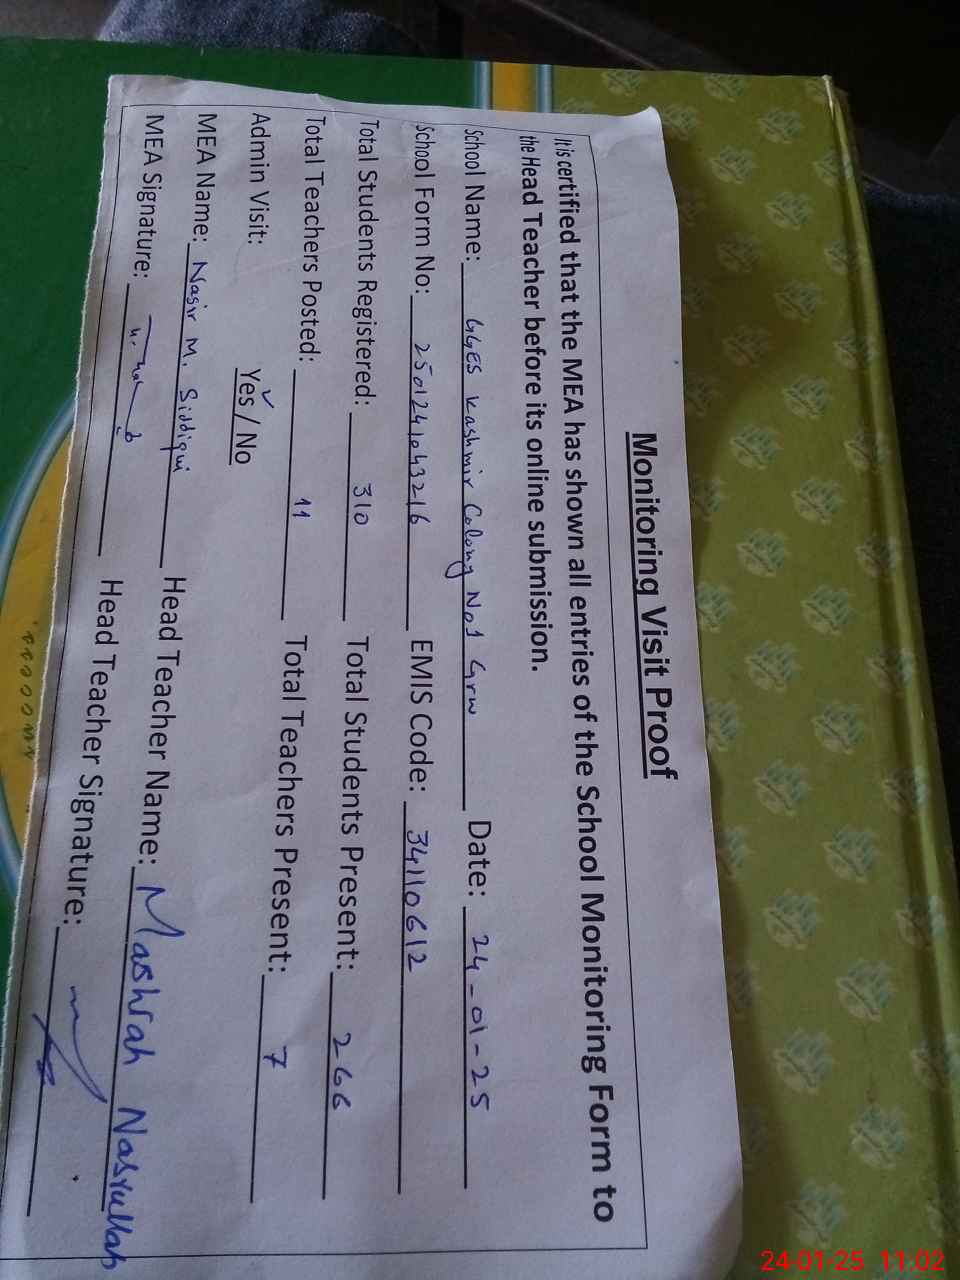 Monitoring Visit Proof
It is certified that the MEA has shown all entries of the School Monitoring Form to
the Head Teacher before its online submission.
School Name: GGES Kashmir Colony No1 Grw Date: 24-01-25
School Form No: 2501241043216 EMIS Code: 34110612
Total Students Registered: 310 Total Students Present: 266
Total Teachers Posted: 11 Total Teachers Present: 7
Admin Visit: Yes / No
MEA Name: Nasir M. Siddiqui Head Teacher Name: Mashrah Nasrullah
MEA Signature: Head Teacher Signature:
24-01-25 11:02